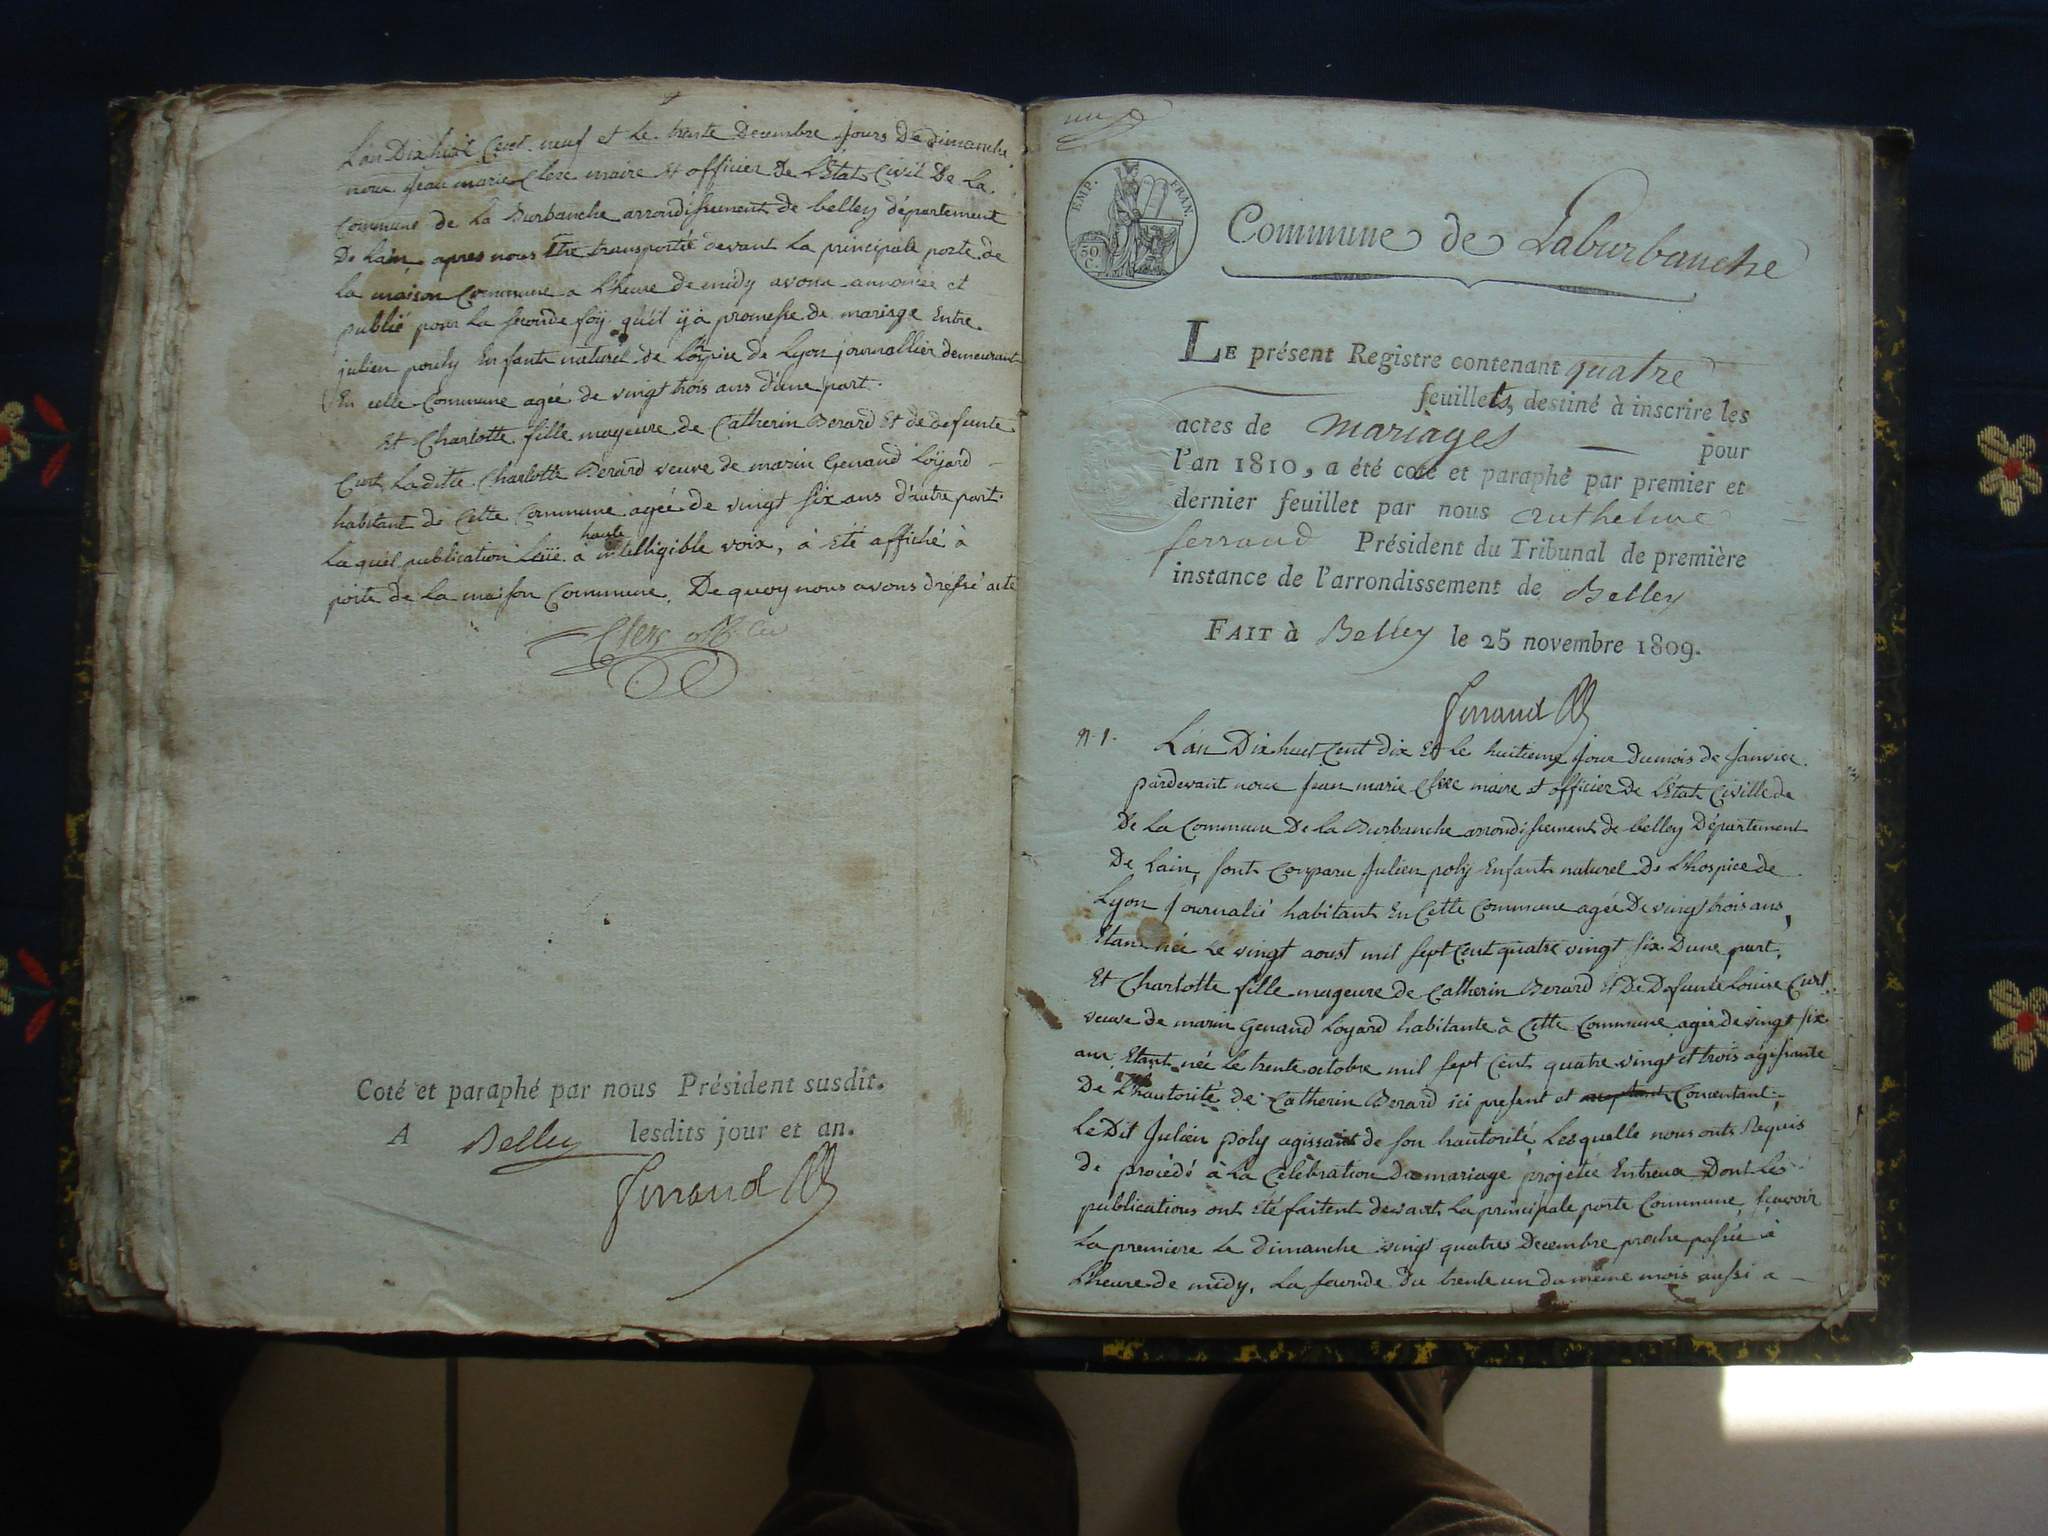 L'an Dix huit Cent neuf et le trente Decembre Jours De Dimanche
nous Jean marie Clerc maire et officier De L'Etat Civil De La
Commune de La Burbanche arrondissement de belley département
De Lain, apres nous Etre transportée devant La principale porte de
La maison Commune a Lheure de midy avons annoncée et
publié pour La seconde foÿ qu'il ÿ à promesse de mariage Entre
julien pouly Enfant naturel de Lospice de Lyon journallier demeurant
En cette Commune agée de vingt trois ans d'une part.
Et Charlotte fille mageure de Catherin Berard Et de defunte
Curt Laditte Charlotte Berard veuve de marin Genand Loÿard
habitant de Cette Commune agée de vingt six ans d'autre part.
Laquel publication Leüe a haute intelligible voix, à Eté affiché à
porte de La maison Commune. De quoy nous avons dressé acte
Clerc
Coté et paraphé par nous Président susdit.
A Belley lesdits jour et an.
Ferrand
EMP. FRAN.
50 C.
Commune de Laburbanche
LE présent Registre contenant quatre
feuillets, destiné à inscrire les
actes de mariages — pour
l'an 1810, a été coté et paraphé par premier et
dernier feuillet par nous Anthelme
ferrand Président du Tribunal de première
instance de l'arrondissement de Belley
FAIT à Belley le 25 novembre 1809.
Ferrand
n. 1. L'an Dix huit Cent dix Et le huitieme Jour Du mois de Janvier
pardevant nous Jean marie Clerc maire et officier De L'Etat Civille de
De La Commune De La Burbanche arrondissement de belley Département
De Lain, sont Comparu Julien poly Enfant naturel De Lhospice de
Lyon Journalié habitant En Cette Commune agée De vingt trois ans,
Etant née Le vingt aoust mil sept Cent quatre vingt six. D'une part.
Et Charlotte fille mageure de Catherin Berard Et De Defunte Louise Curt
veuve de marin Genand Loyard habitante à Cette Commune agée de vingt six
ans Etant née Le trente octobre mil sept Cent quatre vingt et trois agissante
De L'hautorité de Catherin Berard ici present et Concentant,
Le Dit Julien poly agissant de son hautorité, Lesquelle nous onts Requis
de procédé à La Celebration Du mariage projetée Entreux Dont Les
publications ont été faitent devant La principale porte Commune, sçavoir
La premiere Le Dimanche vingt quatres Decembre proche passée à
Lheure de midy. La seconde Du trente un du même mois aussi a